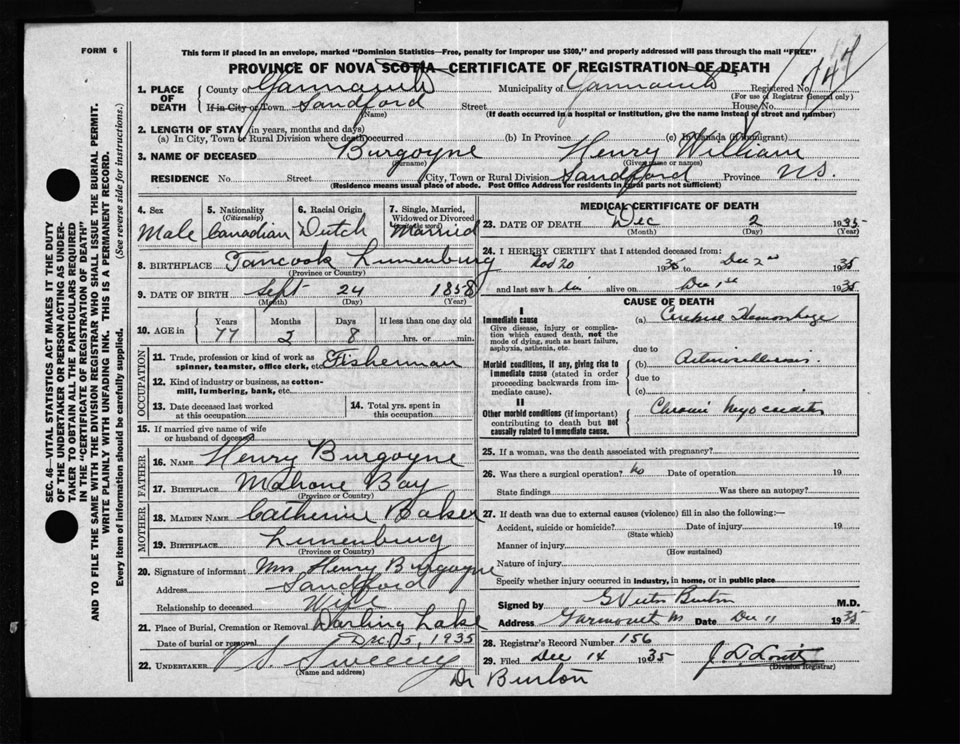 FORM 6
This form if placed in an envelope, marked "Dominion Statistics—Free, penalty for improper use $300," and properly addressed will pass through the mail "FREE"
PROVINCE OF NOVA SCOTIA—CERTIFICATE OF REGISTRATION OF DEATH
SEC. 46—VITAL STATISTICS ACT MAKES IT THE DUTY OF THE UNDERTAKER OR PERSON ACTING AS UNDERTAKER TO OBTAIN ALL THE PARTICULARS REQUIRED IN THE "CERTIFICATE OF REGISTRATION OF DEATH"
AND TO FILE THE SAME WITH THE DIVISION REGISTRAR WHO SHALL ISSUE THE BURIAL PERMIT.
WRITE PLAINLY WITH UNFADING INK. THIS IS A PERMANENT RECORD.
Every item of information should be carefully supplied. (See reverse side for instructions.)
1. PLACE OF DEATH
County of Yarmouth Municipality of Yarmouth Registered No.
(For use of Registrar General only)
If in City or Town Sandford Street House No.
(Name) (If death occurred in a hospital or institution, give the name instead of street and number)
2. LENGTH OF STAY (in years, months and days)
(a) In City, Town or Rural Division where death occurred (b) In Province (c) In Canada (if immigrant)
3. NAME OF DECEASED Burgoyne Henry William
(Surname) (Given name or names)
RESIDENCE No. Street City, Town or Rural Division Sandford Province N.S.
(Residence means usual place of abode. Post Office Address for residents in rural parts not sufficient)
4. Sex Male
5. Nationality (Citizenship) Canadian
6. Racial Origin Dutch
7. Single, Married, Widowed or Divorced Married
8. BIRTHPLACE Tancook Lunenburg
(Province or Country)
9. DATE OF BIRTH Sept 24 1858
(Month) (Day) (Year)
10. AGE in Years 77 Months 2 Days 8 If less than one day old hrs. or min.
OCCUPATION
11. Trade, profession or kind of work as spinner, teamster, office clerk, etc. Fisherman
12. Kind of industry or business, as cotton-mill, lumbering, bank, etc.
13. Date deceased last worked at this occupation
14. Total yrs. spent in this occupation
15. If married give name of wife or husband of deceased
FATHER
16. NAME Henry Burgoyne
17. BIRTHPLACE Mahone Bay
(Province or Country)
MOTHER
18. MAIDEN NAME Catherine Baker
19. BIRTHPLACE Lunenburg
(Province or Country)
20. Signature of informant Mrs Henry Burgoyne
Address Sandford
Relationship to deceased Wife
21. Place of Burial, Cremation or Removal Darling Lake
Date of burial or removal Dec. 5, 1935
22. UNDERTAKER Sweeny
(Name and address)
Dr Burton
MEDICAL CERTIFICATE OF DEATH
23. DATE OF DEATH Dec 2 1935
(Month) (Day) (Year)
24. I HEREBY CERTIFY that I attended deceased from:
Nov 20 1935 to Dec 2nd 1935
and last saw him alive on Dec 1st 1935
CAUSE OF DEATH
I
Immediate cause
Give disease, injury or complication which caused death, not the mode of dying, such as heart failure, asphyxia, asthenia, etc.
(a) Cerebral Hemorrhage
due to
Morbid conditions, if any, giving rise to immediate cause (stated in order proceeding backwards from immediate cause).
(b)
due to
(c)
II
Other morbid conditions (if important) contributing to death but not causally related to immediate cause.
Chronic Myocarditis
25. If a woman, was the death associated with pregnancy?
26. Was there a surgical operation? No Date of operation 19
State findings Was there an autopsy?
27. If death was due to external causes (violence) fill in also the following:—
Accident, suicide or homicide? Date of injury 19
(State which)
Manner of injury
(How sustained)
Nature of injury
Specify whether injury occurred in industry, in home, or in public place
Signed by G Victor Burton M.D.
Address Yarmouth Date Dec 11 1935
28. Registrar's Record Number 156
29. Filed Dec 14 1935
(Division Registrar)